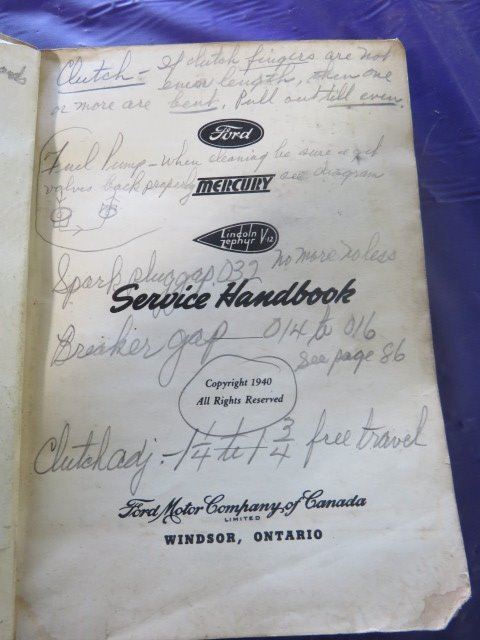 Clutch - If clutch fingers are not
even length, then one
or more are bent. Pull out till even.
Ford
Fuel Pump - When cleaning be sure
valves back properly see diagram
MERCURY
Lincoln
Zephyr V-12
Spark plug gap .032 no more no less
Service Handbook
Breaker gap 014 to 016
See page 86
Copyright 1940
All Rights Reserved
Clutch adj. - 1 1/4 to 1 3/4 free travel
Ford Motor Company of Canada
LIMITED
WINDSOR, ONTARIO